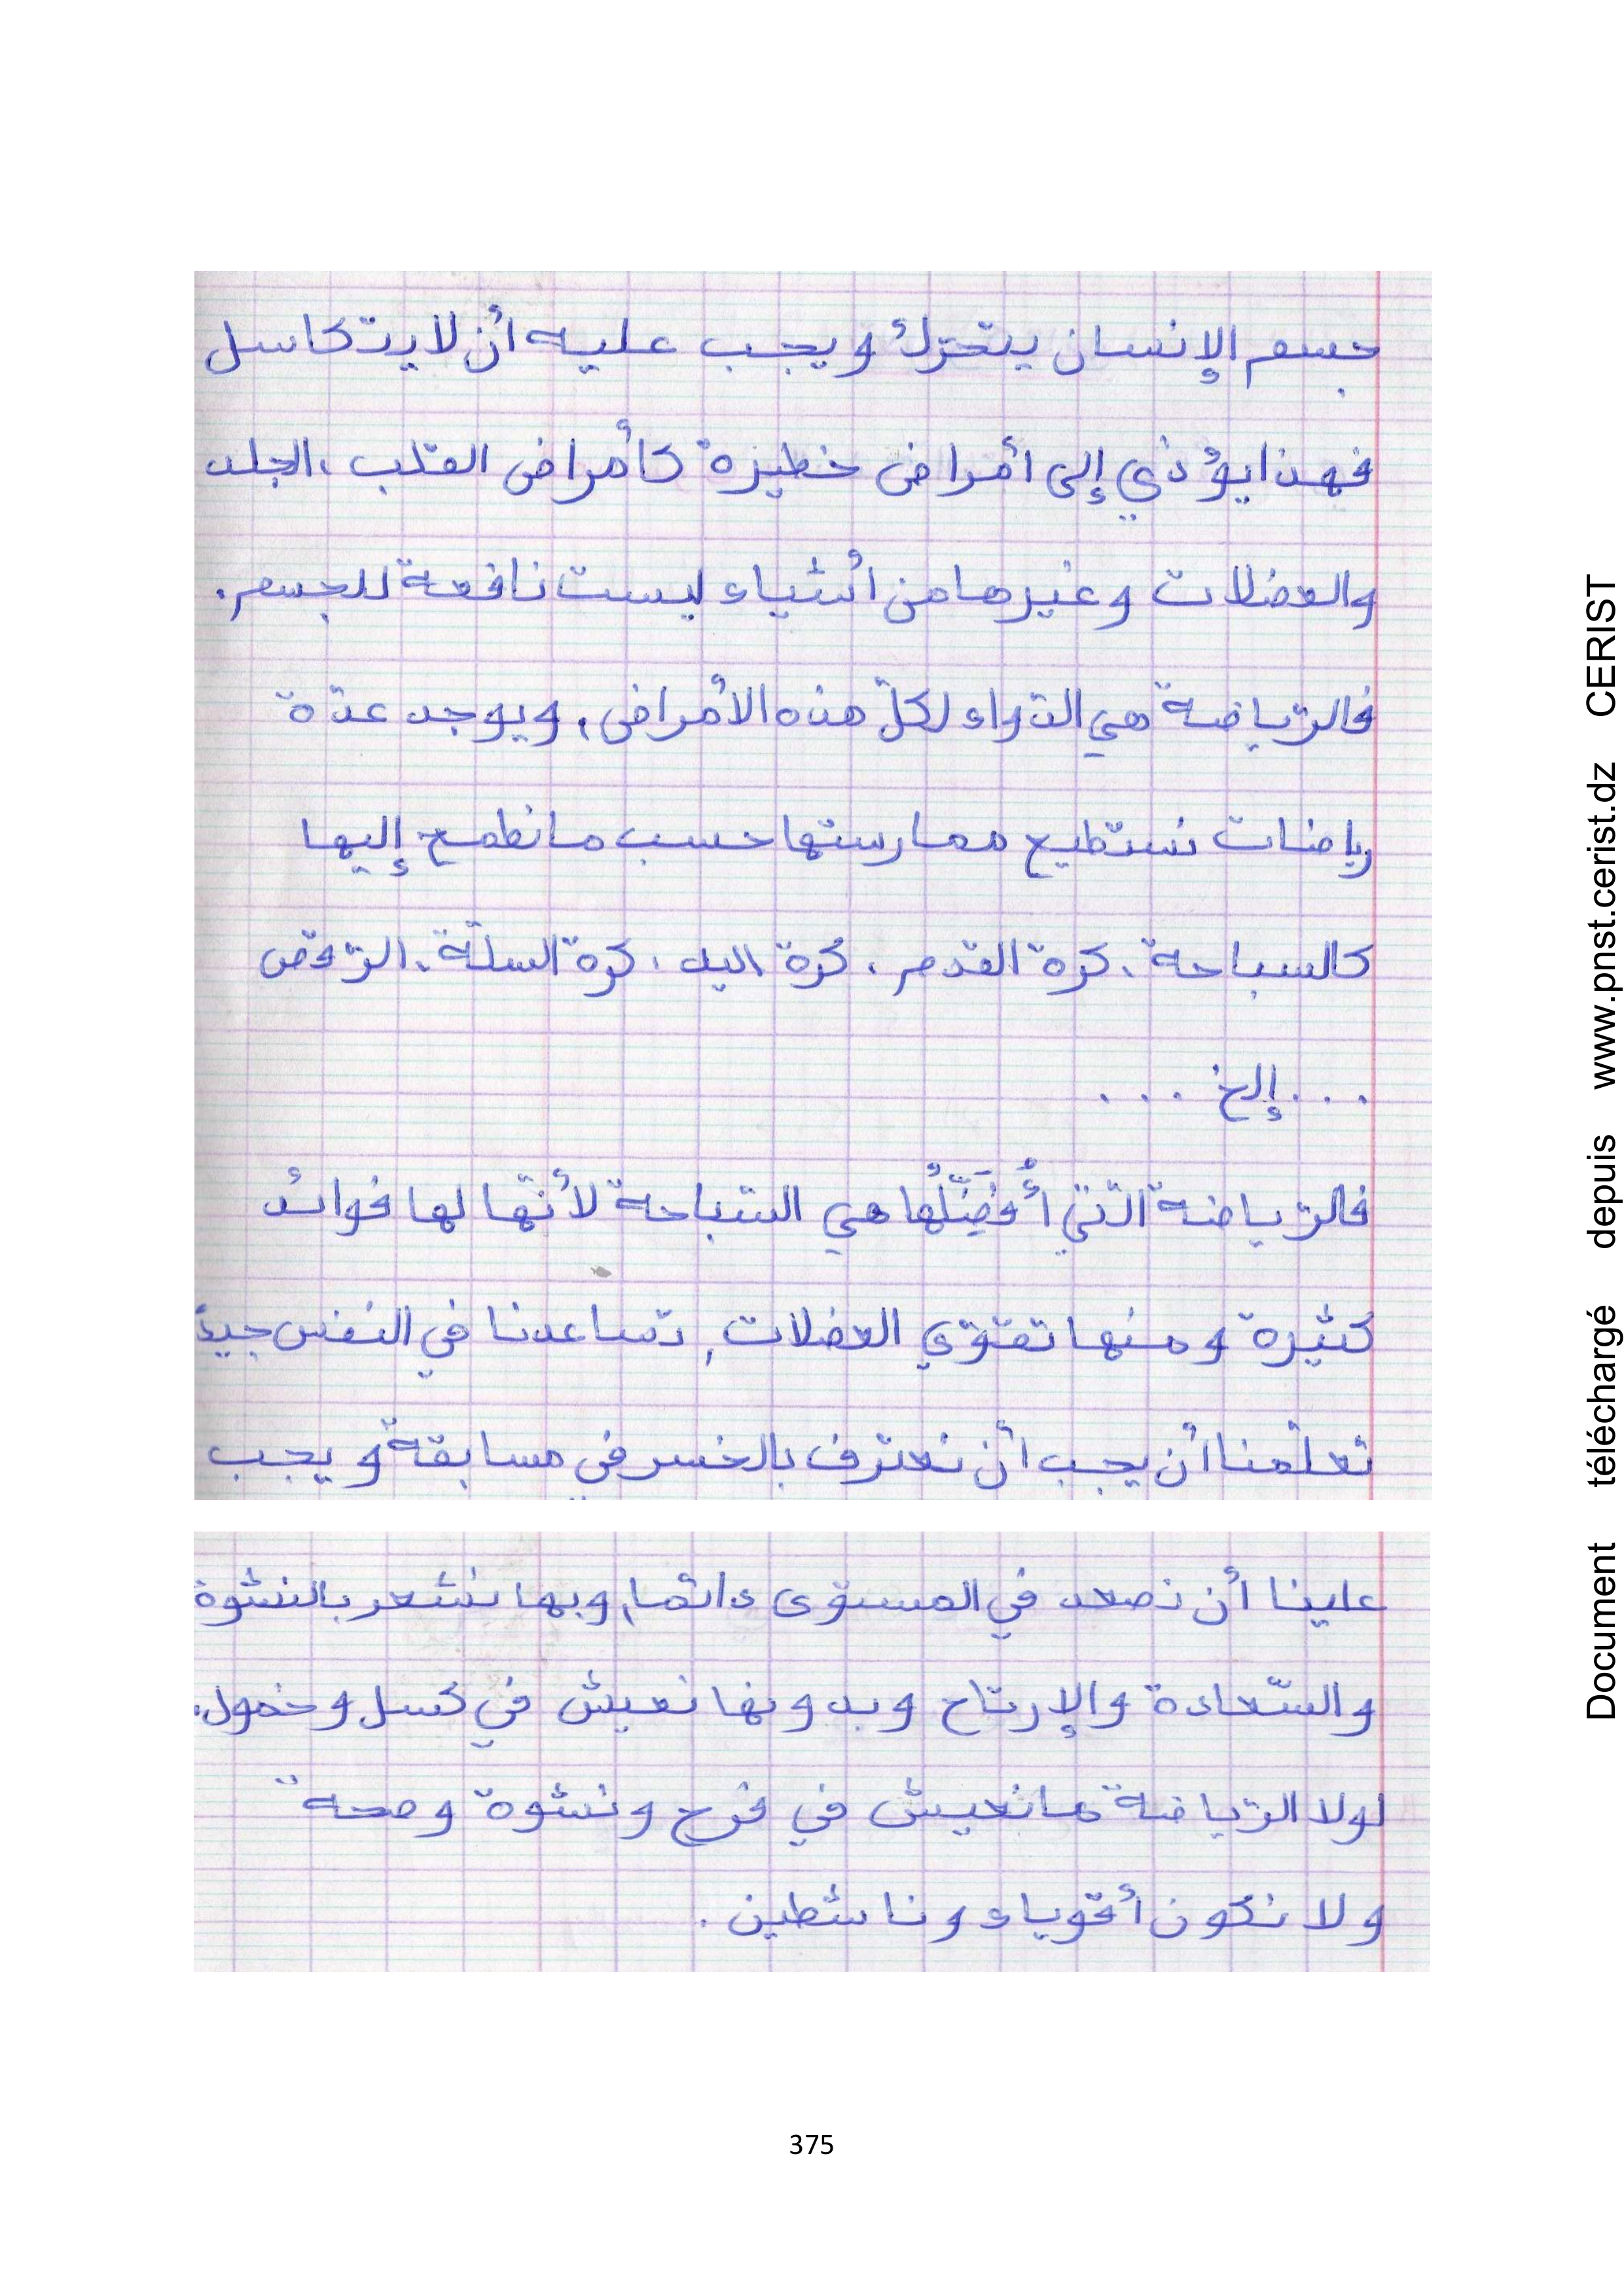 جسم الإنسان يتحرّك ويجب عليه أن لا يتكاسل
فهذا يؤذي إلى أمراض خطيرة كأمراض القلب، الجلد
والعضلات وغيرها من أشياء ليست نافعة للجسم.
فالرّياضة هي الدّواء لكلّ هذه الأمراض، ويوجد عدّة
رياضات نستطيع ممارستها حسب ما نطمح إليها
كالسباحة، كرة القدم، كرة اليد، كرة السلّة، الرّقص
...إلخ...
فالرّياضة الّتي أُفَضِّلُها هي السّباحة لأنّها لها فوائد
كثيرة ومنها تقوّي العضلات، تساعدنا في النفس جيدً
تعلّمنا أن يجب أن نعترف بالخسر في مسابقة ويجب
علينا أن نصعد في المستوى دائما، وبها نشعر بالنشوة
والسّعادة والإرتاح وبدونها نعيش في كسل وخمول.
لولا الرّياضة ما نعيش في فرح ونشوة وصحة
ولا نكون أقوياء وناشطين.
375
Document téléchargé depuis www.pnst.cerist.dz CERIST